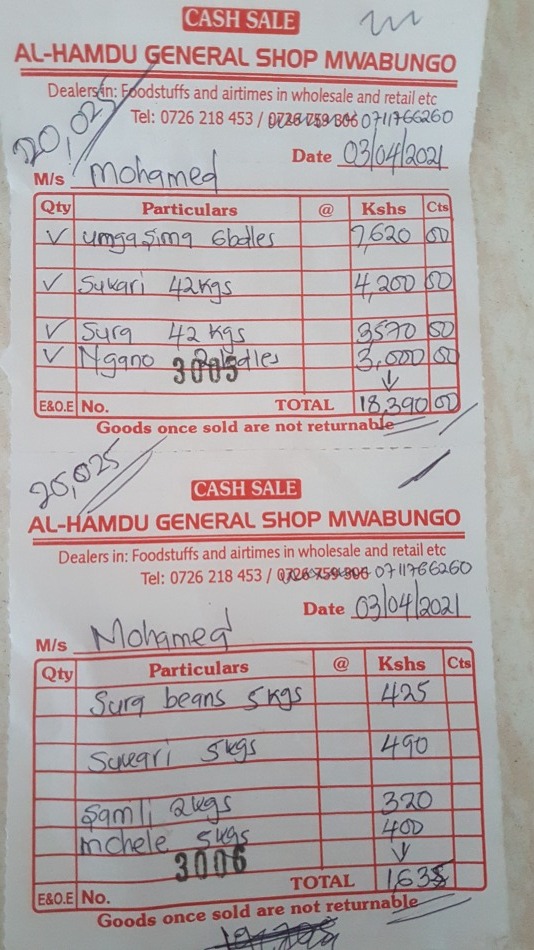 CASH SALE
AL-HAMDU GENERAL SHOP MWABUNGO
Dealers in: Foodstuffs and airtimes in wholesale and retail etc
20,025
Tel: 0726 218 453 / 0726 759 306 0711766260
Date 03/04/2021
M/s Mohamed
Qty Particulars @ Kshs Cts
✓ umgasima 6bdles 7,620 00
✓ Sukari 42kgs 4,200 00
✓ Sura 42kgs 3570 00
✓ Ngano 2bdles 3,000 00
3005
E&O.E No. TOTAL 18,390 00
Goods once sold are not returnable
20,025
CASH SALE
AL-HAMDU GENERAL SHOP MWABUNGO
Dealers in: Foodstuffs and airtimes in wholesale and retail etc
Tel: 0726 218 453 / 0726 759 306 0711766260
Date 03/04/2021
M/s Mohamed
Qty Particulars @ Kshs Cts
Sura beans 5kgs 425
Sukari 5kgs 490
Samli 2kgs 320
mchele 5kgs 400
3006
E&O.E No. TOTAL 1,635
Goods once sold are not returnable